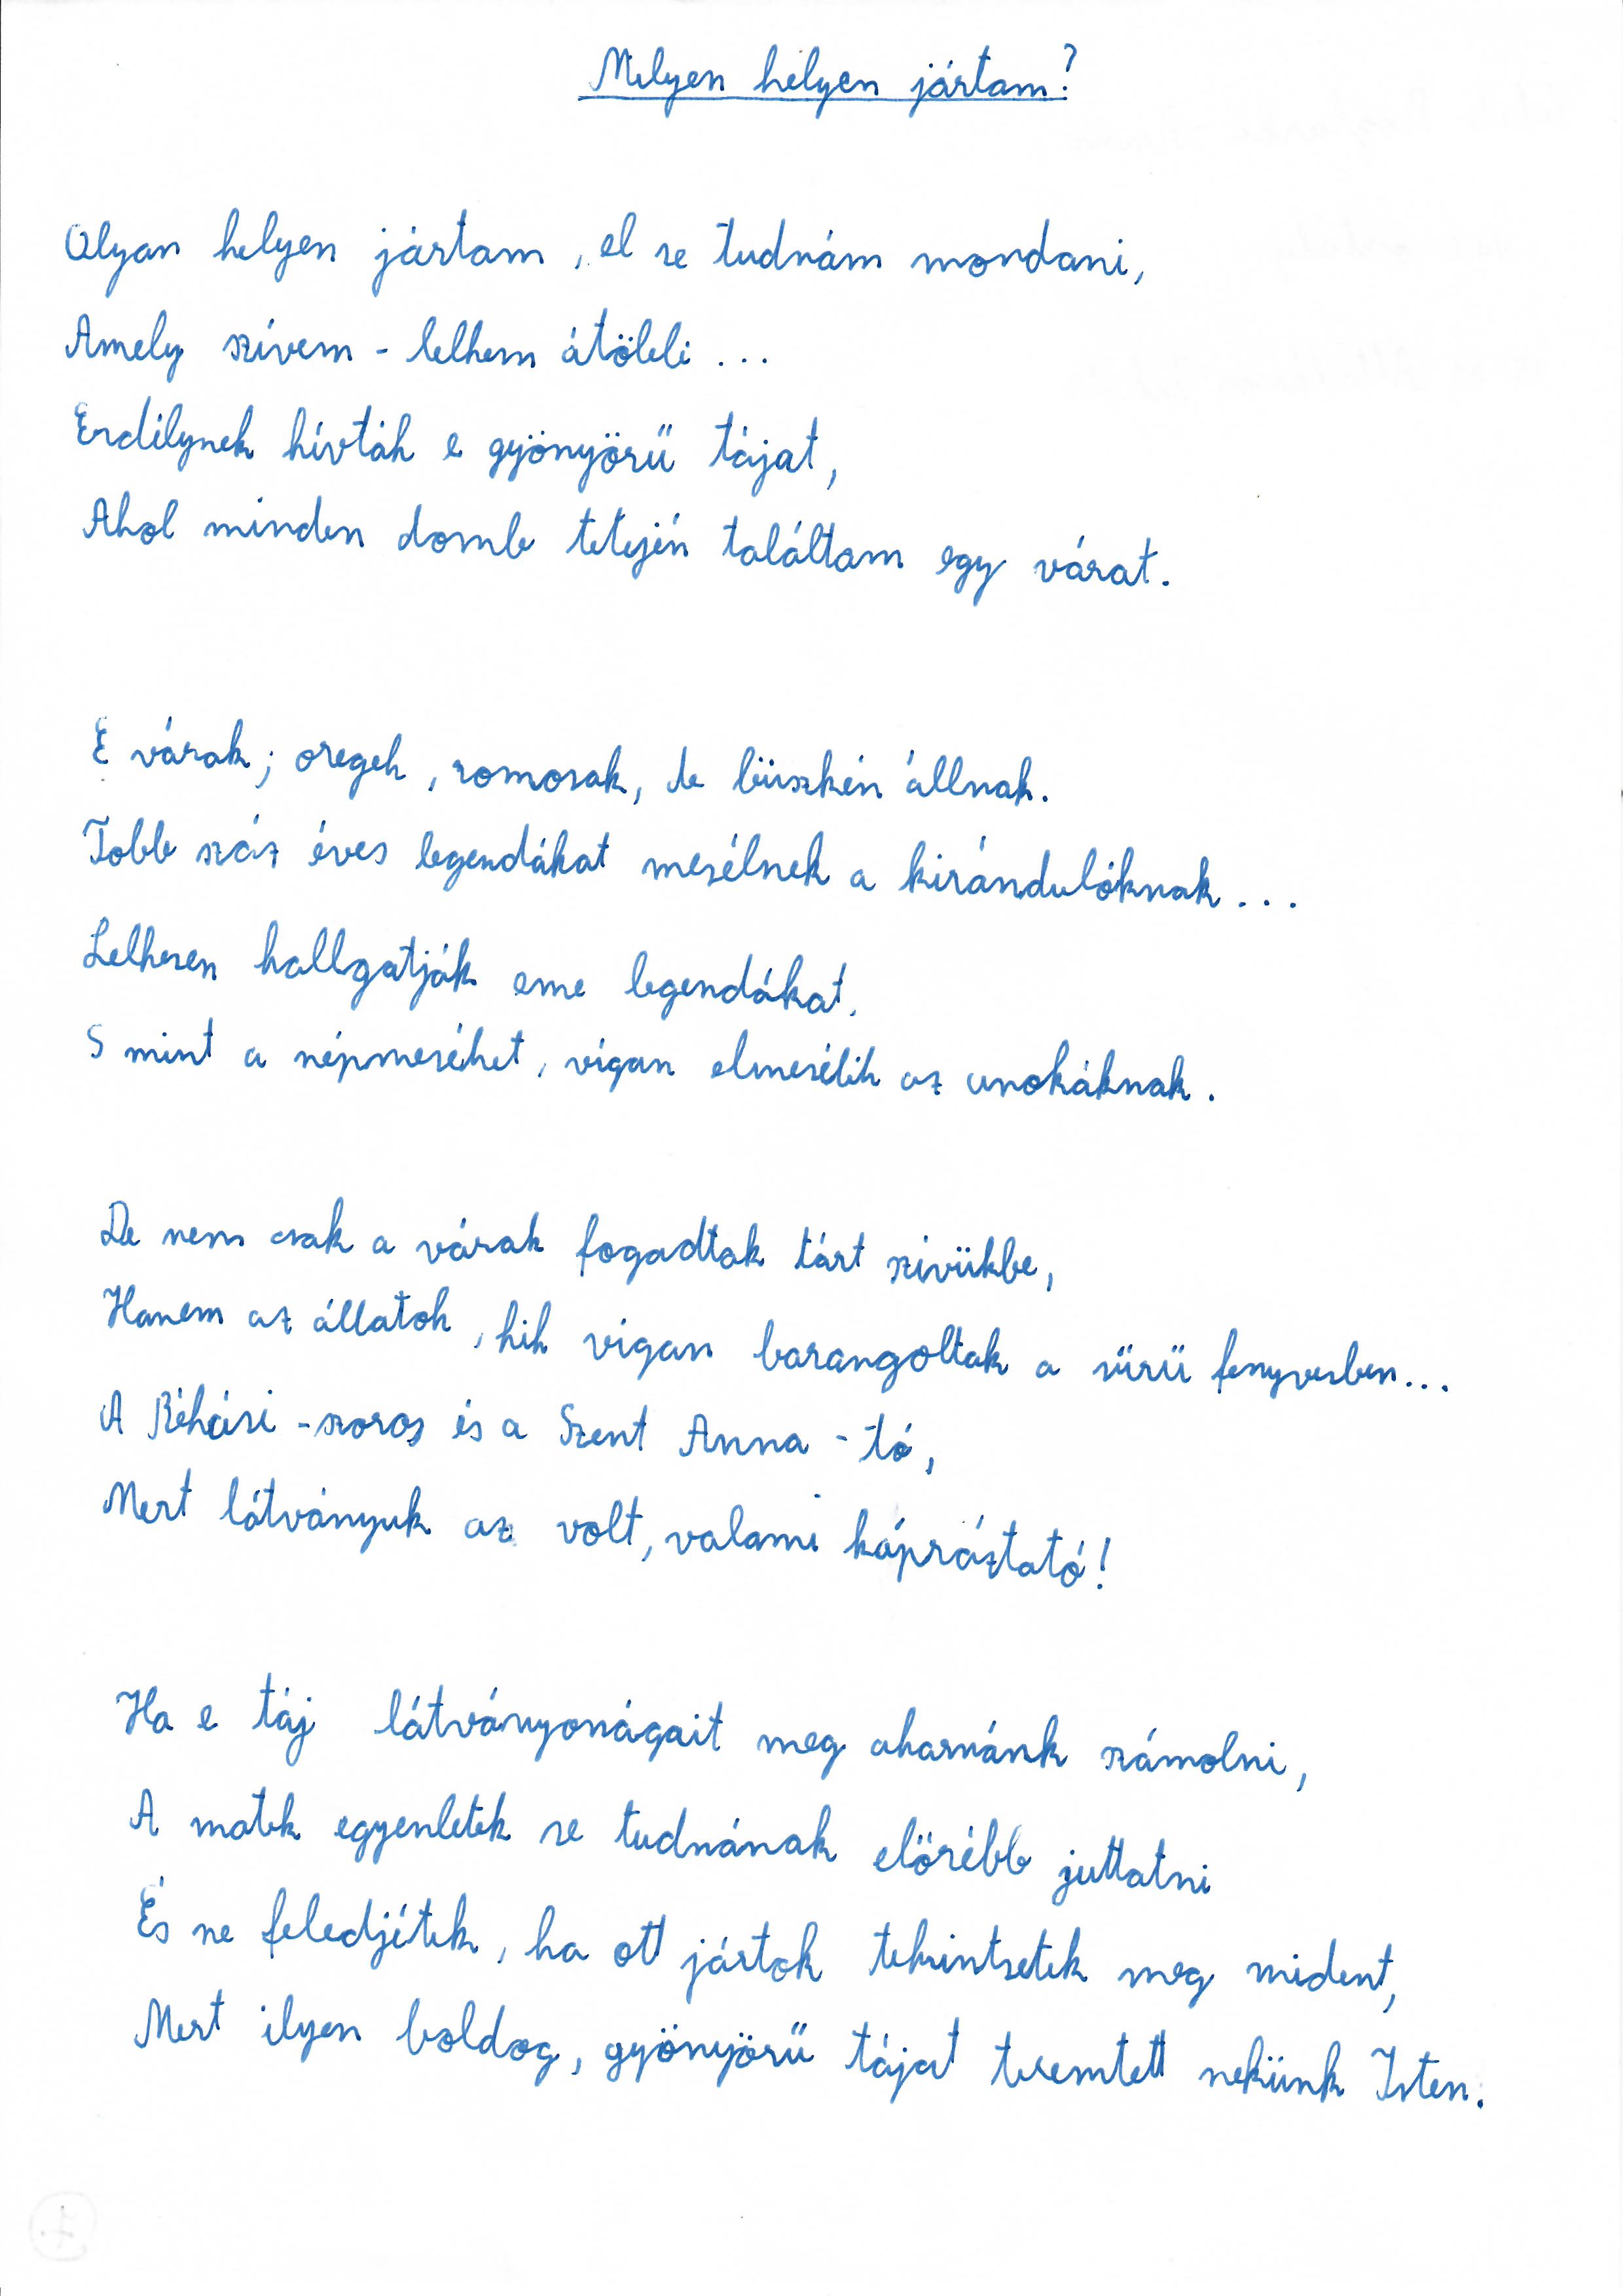 Milyen helyen jártam?
Olyan helyen jártam, el se tudnám mondani,
Amely szívem - lelkem átöleli ...
Erdélynek hívták e gyönyörű tájat,
Ahol minden domb tetején találtam egy várat.
E várak; oregek, romosak, de büszkén állnak.
Tobb száz éves legendákat mesélnek a kirándulóknak ...
Lelkesen hallgatják eme legendákat,
S mint a népmeséket, vígan elmesélik az unokáknak.
De nem csak a várak fogadtak tárt szivükbe,
Hanem az állatok, kik vigan barangoltak a sűrű fenyvesben...
A Békási -szoros és a Szent Anna -tó,
Mert látványuk az volt, valami kápráztató!
Ha e táj látványosságait meg akarnánk számolni,
A matek egyenletek se tudnának előrébb juttatni
És ne feledjétek, ha ott jártok tekintsetek meg mident,
Mert ilyen boldog, gyönyörű tájat teremtett nekünk Isten.
7.